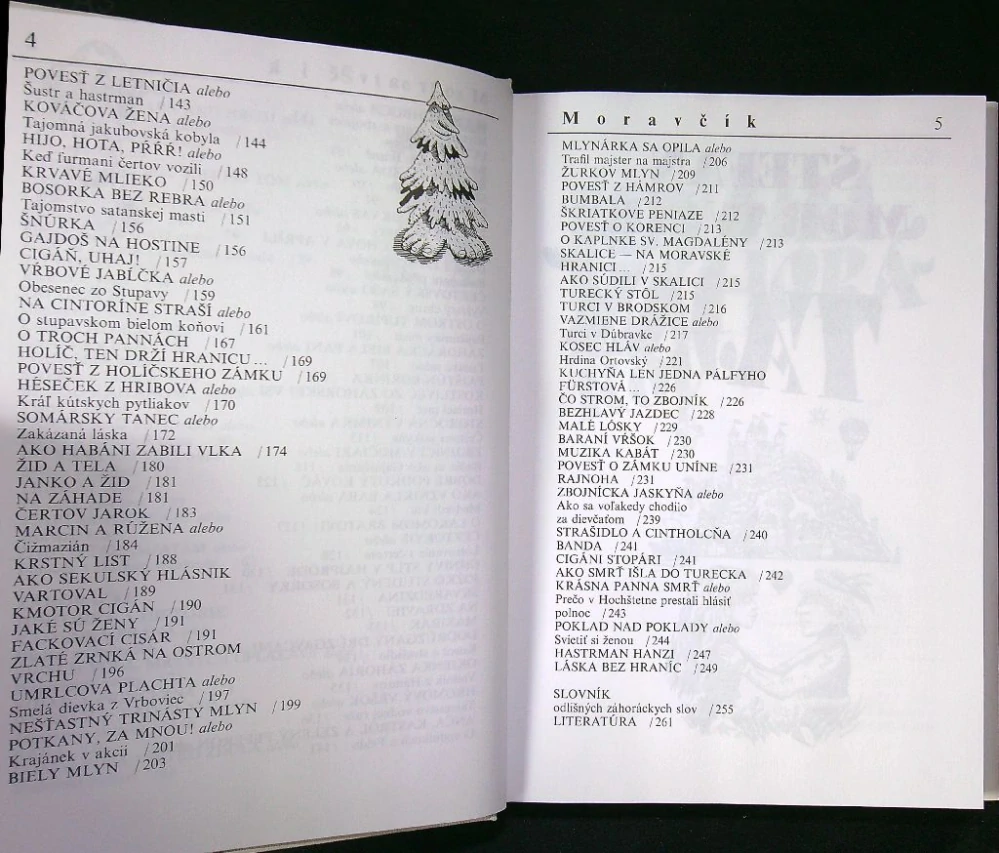 4
POVESŤ Z LETNIČIA alebo
Šustr a hastrman /143
KOVÁČOVA ŽENA alebo
Tajomná jakubovská kobyla /144
HIJO, HOTA, PŘŘŘ! alebo
Keď furmani čertov vozili /148
KRVAVÉ MLIEKO /150
BOSORKA BEZ REBRA alebo
Tajomstvo satanskej masti /151
ŠNÚRKA /156
GAJDOŠ NA HOSTINE /156
CIGÁŇ, UHAJ! /157
VŔBOVÉ JABĹČKA alebo
Obesenec zo Stupavy /159
NA CINTORÍNE STRAŠÍ alebo
O stupavskom bielom koňovi /161
O TROCH PANNÁCH /167
HOLÍČ, TEN DRŽÍ HRANICU... /169
POVESŤ Z HOLÍČSKEHO ZÁMKU /169
HÉSEČEK Z HRIBOVA alebo
Kráľ kútskych pytliakov /170
SOMÁRSKY TANEC alebo
Zakázaná láska /172
AKO HABÁNI ZABILI VLKA /174
ŽID A TELA /180
JANKO A ŽID /181
NA ZÁHADE /181
ČERTOV JAROK /183
MARCIN A RÚŽENA alebo
Čižmazián /184
KRSTNÝ LIST /188
AKO SEKULSKÝ HLÁSNIK
VARTOVAL /189
KMOTOR CIGÁN /190
JAKÉ SÚ ŽENY /191
FACKOVACÍ CISÁR /191
ZLATÉ ZRNKÁ NA OSTROM
VRCHU /196
UMRLCOVA PLACHTA alebo
Smelá dievka z Vrboviec /197
NEŠŤASTNÝ TRINÁSTY MLYN /199
POTKANY, ZA MNOU! alebo
Krajánek v akcií /201
BIELY MLYN /203
Moravčík 5
MLYNÁRKA SA OPILA alebo
Trafil majster na majstra /206
ŽURKOV MLYN /209
POVESŤ Z HÁMROV /211
BUMBALA /212
ŠKRIATKOVE PENIAZE /212
POVESŤ O KORENCI /213
O KAPLNKE SV. MAGDALÉNY /213
SKALICE — NA MORAVSKÉ
HRANICI... /215
AKO SÚDILI V SKALICI /215
TURECKÝ STÔL /215
TURCI V BRODSKOM /216
VAZMIENE DRÁŽICE alebo
Turci v Dúbravke /217
KOSEC HLÁV alebo
Hrdina Ortovský /221
KUCHYŇA LEN JEDNA PÁLFYHO
FÜRSTOVÁ... /226
ČO STROM, TO ZBOJNÍK /226
BEZHLAVÝ JAZDEC /228
MALÉ LÓSKY /229
BARANÍ VŔŠOK /230
MUZIKA KABÁT /230
POVESŤ O ZÁMKU UNÍNE /231
RAJNOHA /231
ZBOJNÍCKA JASKYŇA alebo
Ako sa voľakedy chodilo
za dievčaťom /239
STRAŠIDLO A CINTHOLCŇA /240
BANDA /241
CIGÁNI STOPÁRI /241
AKO SMRŤ IŠLA DO TURECKA /242
KRÁSNA PANNA SMRŤ alebo
Prečo v Hochštetne prestali hlásiť
polnoc /243
POKLAD NAD POKLADY alebo
Svietiť si ženou /244
HASTRMAN HANZI /247
LÁSKA BEZ HRANÍC /249
SLOVNÍK
odlišných záhoráckych slov /255
LITERATÚRA /261